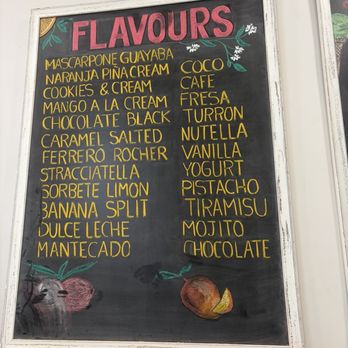 FLAVOURS
MASCARPONE GUAYABA
NARANJA PIÑA CREAM
COOKIES & CREAM
MANGO A LA CREAM
CHOCOLATE BLACK
CARAMEL SALTED
FERRERO ROCHER
STRACCIATELLA
SORBETE LIMON
BANANA SPLIT
DULCE LECHE
MANTECADO
COCO
CAFE
FRESA
TURRON
NUTELLA
VANILLA
YOGURT
PISTACHO
TIRAMISU
MOJITO
CHOCOLATE